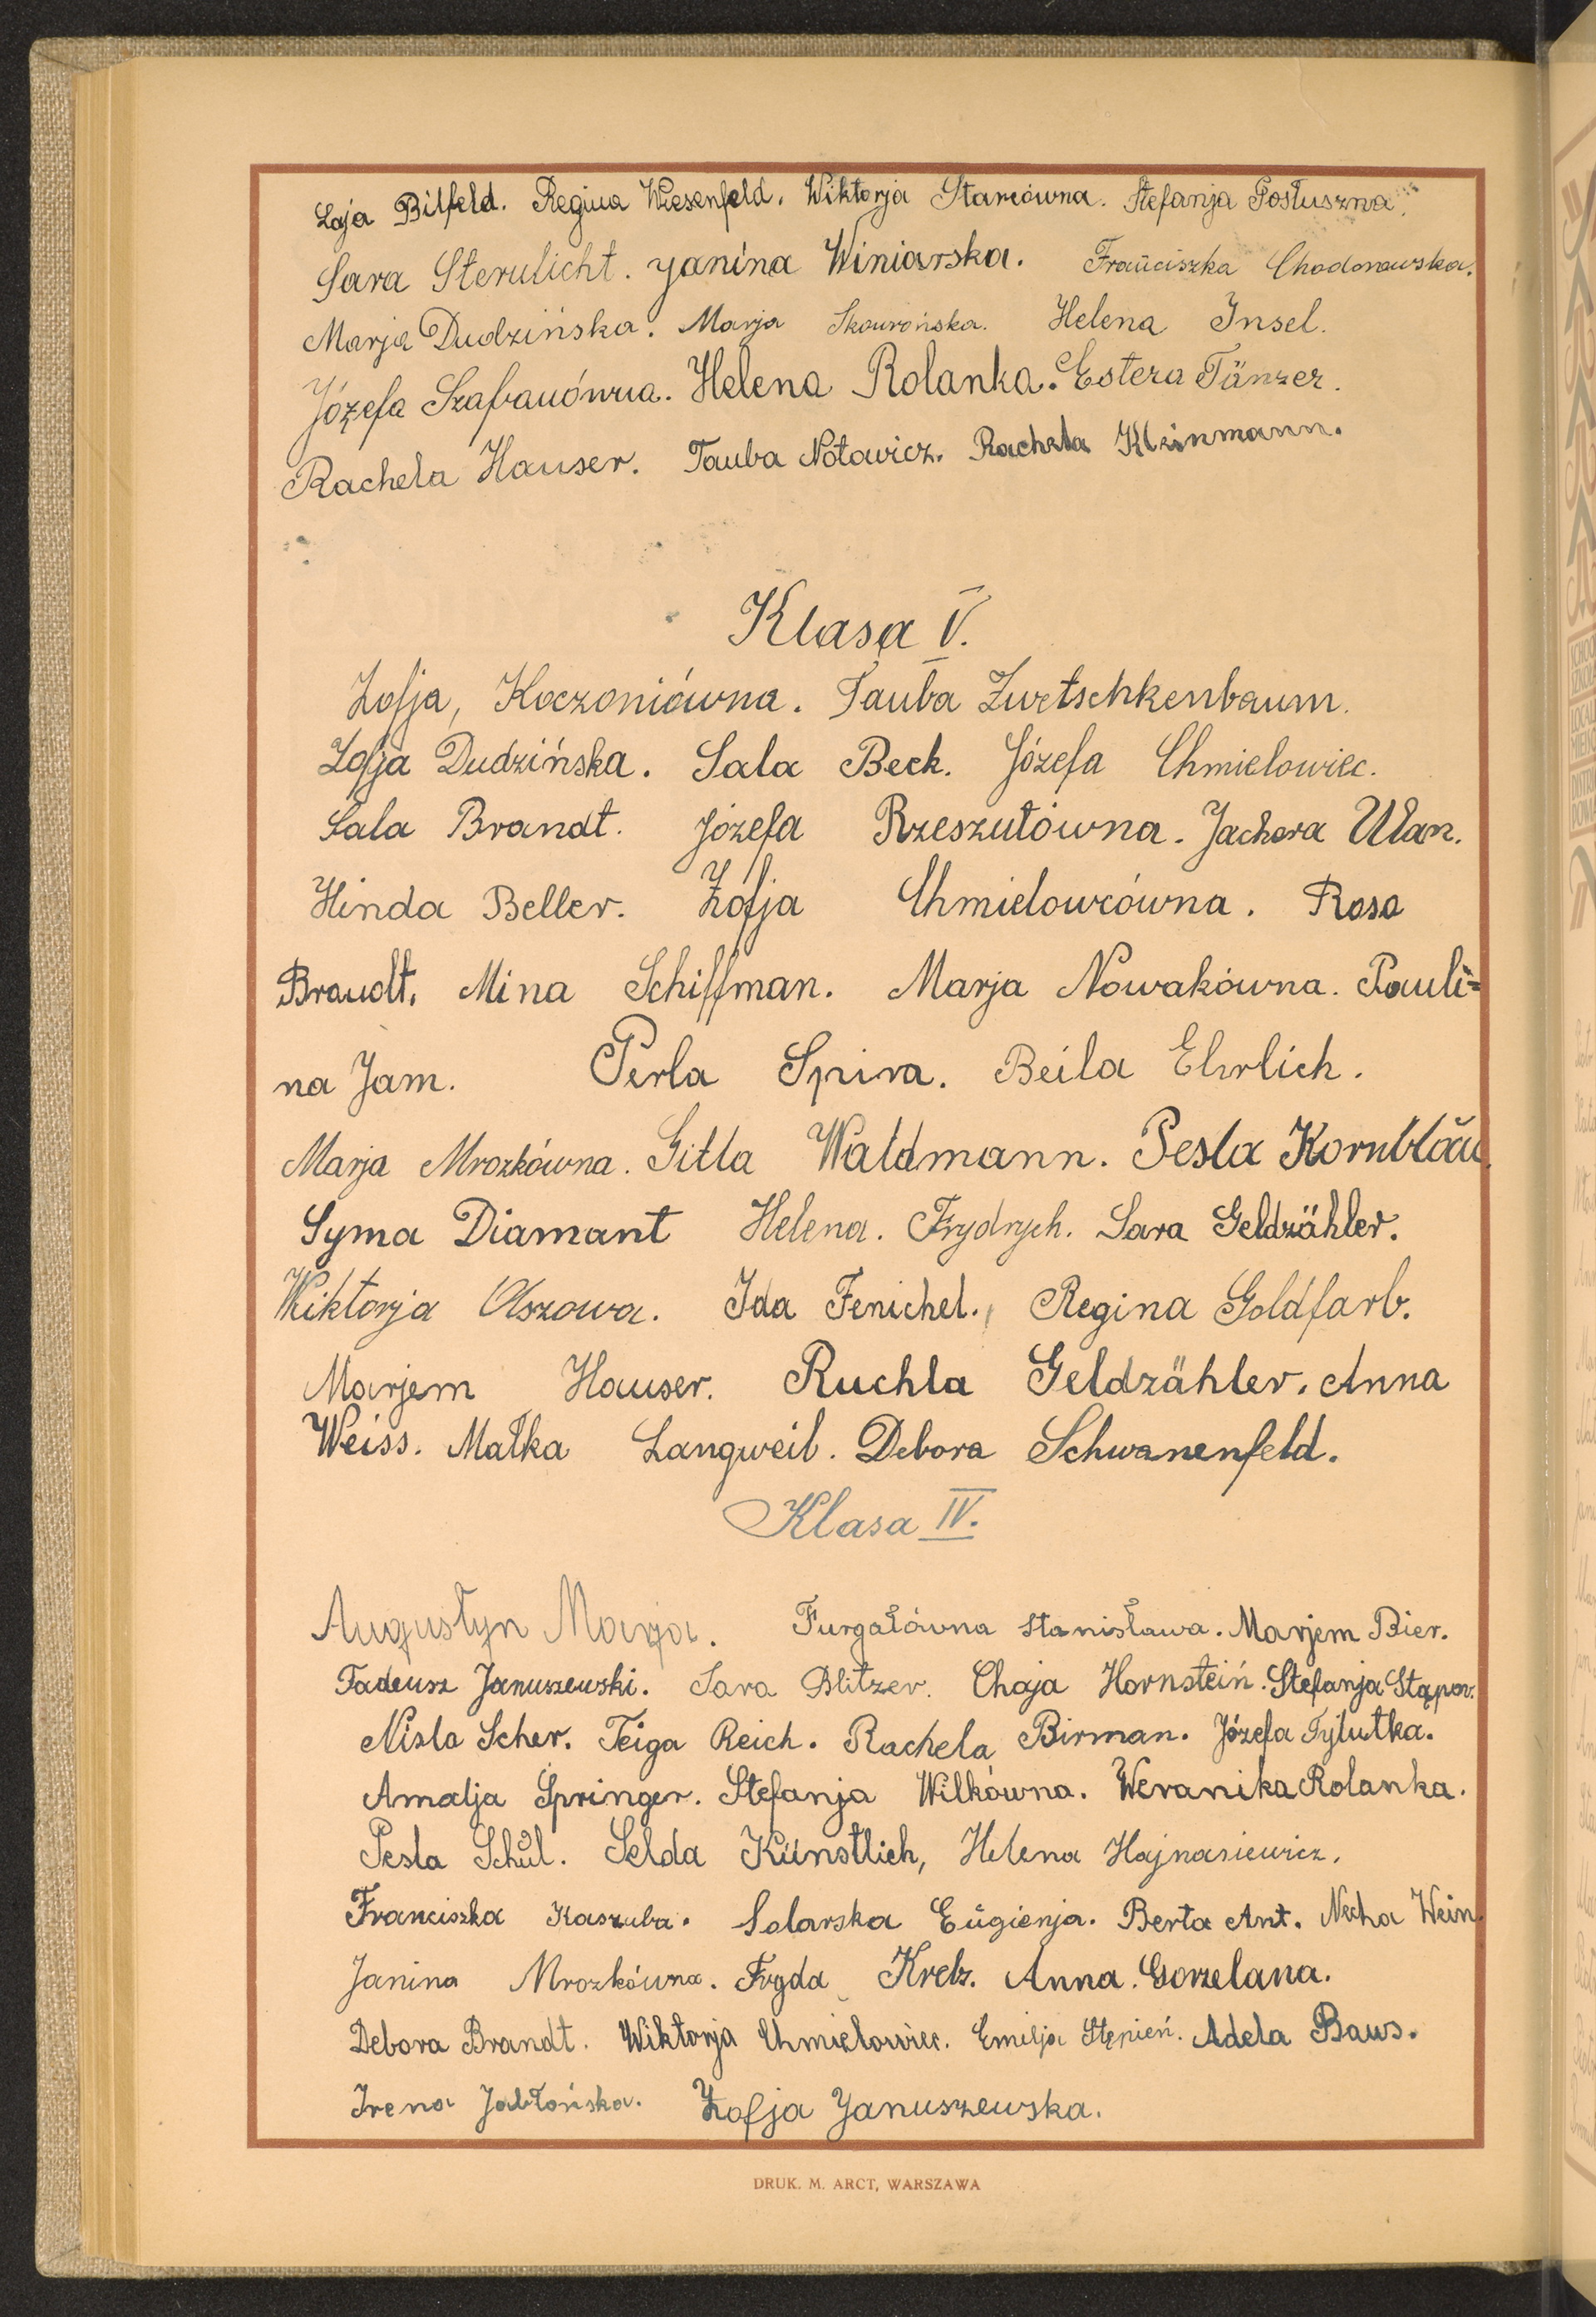 Laja Bilfeld. Regina Wiesenfeld. Wiktorja Starcówna. Stefanja Posłuszna.
Sara Sternlicht. Janina Winiarska. Franciszka Chodorowska.
Marja Dudzińska. Marja Skowrońska. Helena Insel.
Józefa Szafranówna. Helena Rolanka. Estera Tänzer.
Rachela Hauser. Tauba Notowicz. Rachela Kleinmann.
Klasa V.
Zofja, Koczoniówna. Tauba Zwetschkenbaum.
Zofja Dudzińska. Sala Beck. Józefa Chmielowiec.
Sala Brandt. Józefa Rzeszutówna. Jachera Ulan.
Hinda Beller. Zofja Chmielowcówna. Rosa
Brandt. Mina Schiffman. Marja Nowakówna. Pauli=
na Jam. Perla Spira. Beila Ehrlich.
Marja Mrozkówna. Gitla Waldmann. Pesla Kornbläu
Syma Diamant Helena. Frydrych. Sara Geldzähler.
Wiktorja Olszowa. Ida Fenichel. Regina Goldfarb.
Marjem Hauser. Ruchla Geldzähler. Anna
Weiss. Małka Langweil. Debora Schwanenfeld.
Klasa IV.
Augustyn Marja. Furgałówna Stanisława. Marjem Bier.
Tadeusz Januszewski. Sara Blitzer. Chaja Hornstein. Stefanja Stąpor.
Nisla Scher. Feiga Reich. Rachela Birman. Józefa Tylutka.
Amalja Springer. Stefanja Wilkówna. Weranika Rolanka.
Pesla Schul. Selda Künstlich, Helena Hajnasiewicz.
Franciszka Kaszuba. Solarska Eugienja. Berta Ant. Necha Wein.
Janina Mrozkówna. Fryda Krebz. Anna. Gorzelana.
Debora Brandt. Wiktorja Chmielowiec. Emilja Stępień. Adela Baws.
Irena Jabłońska. Zofja Januszewska.
DRUK. M. ARCT, WARSZAWA